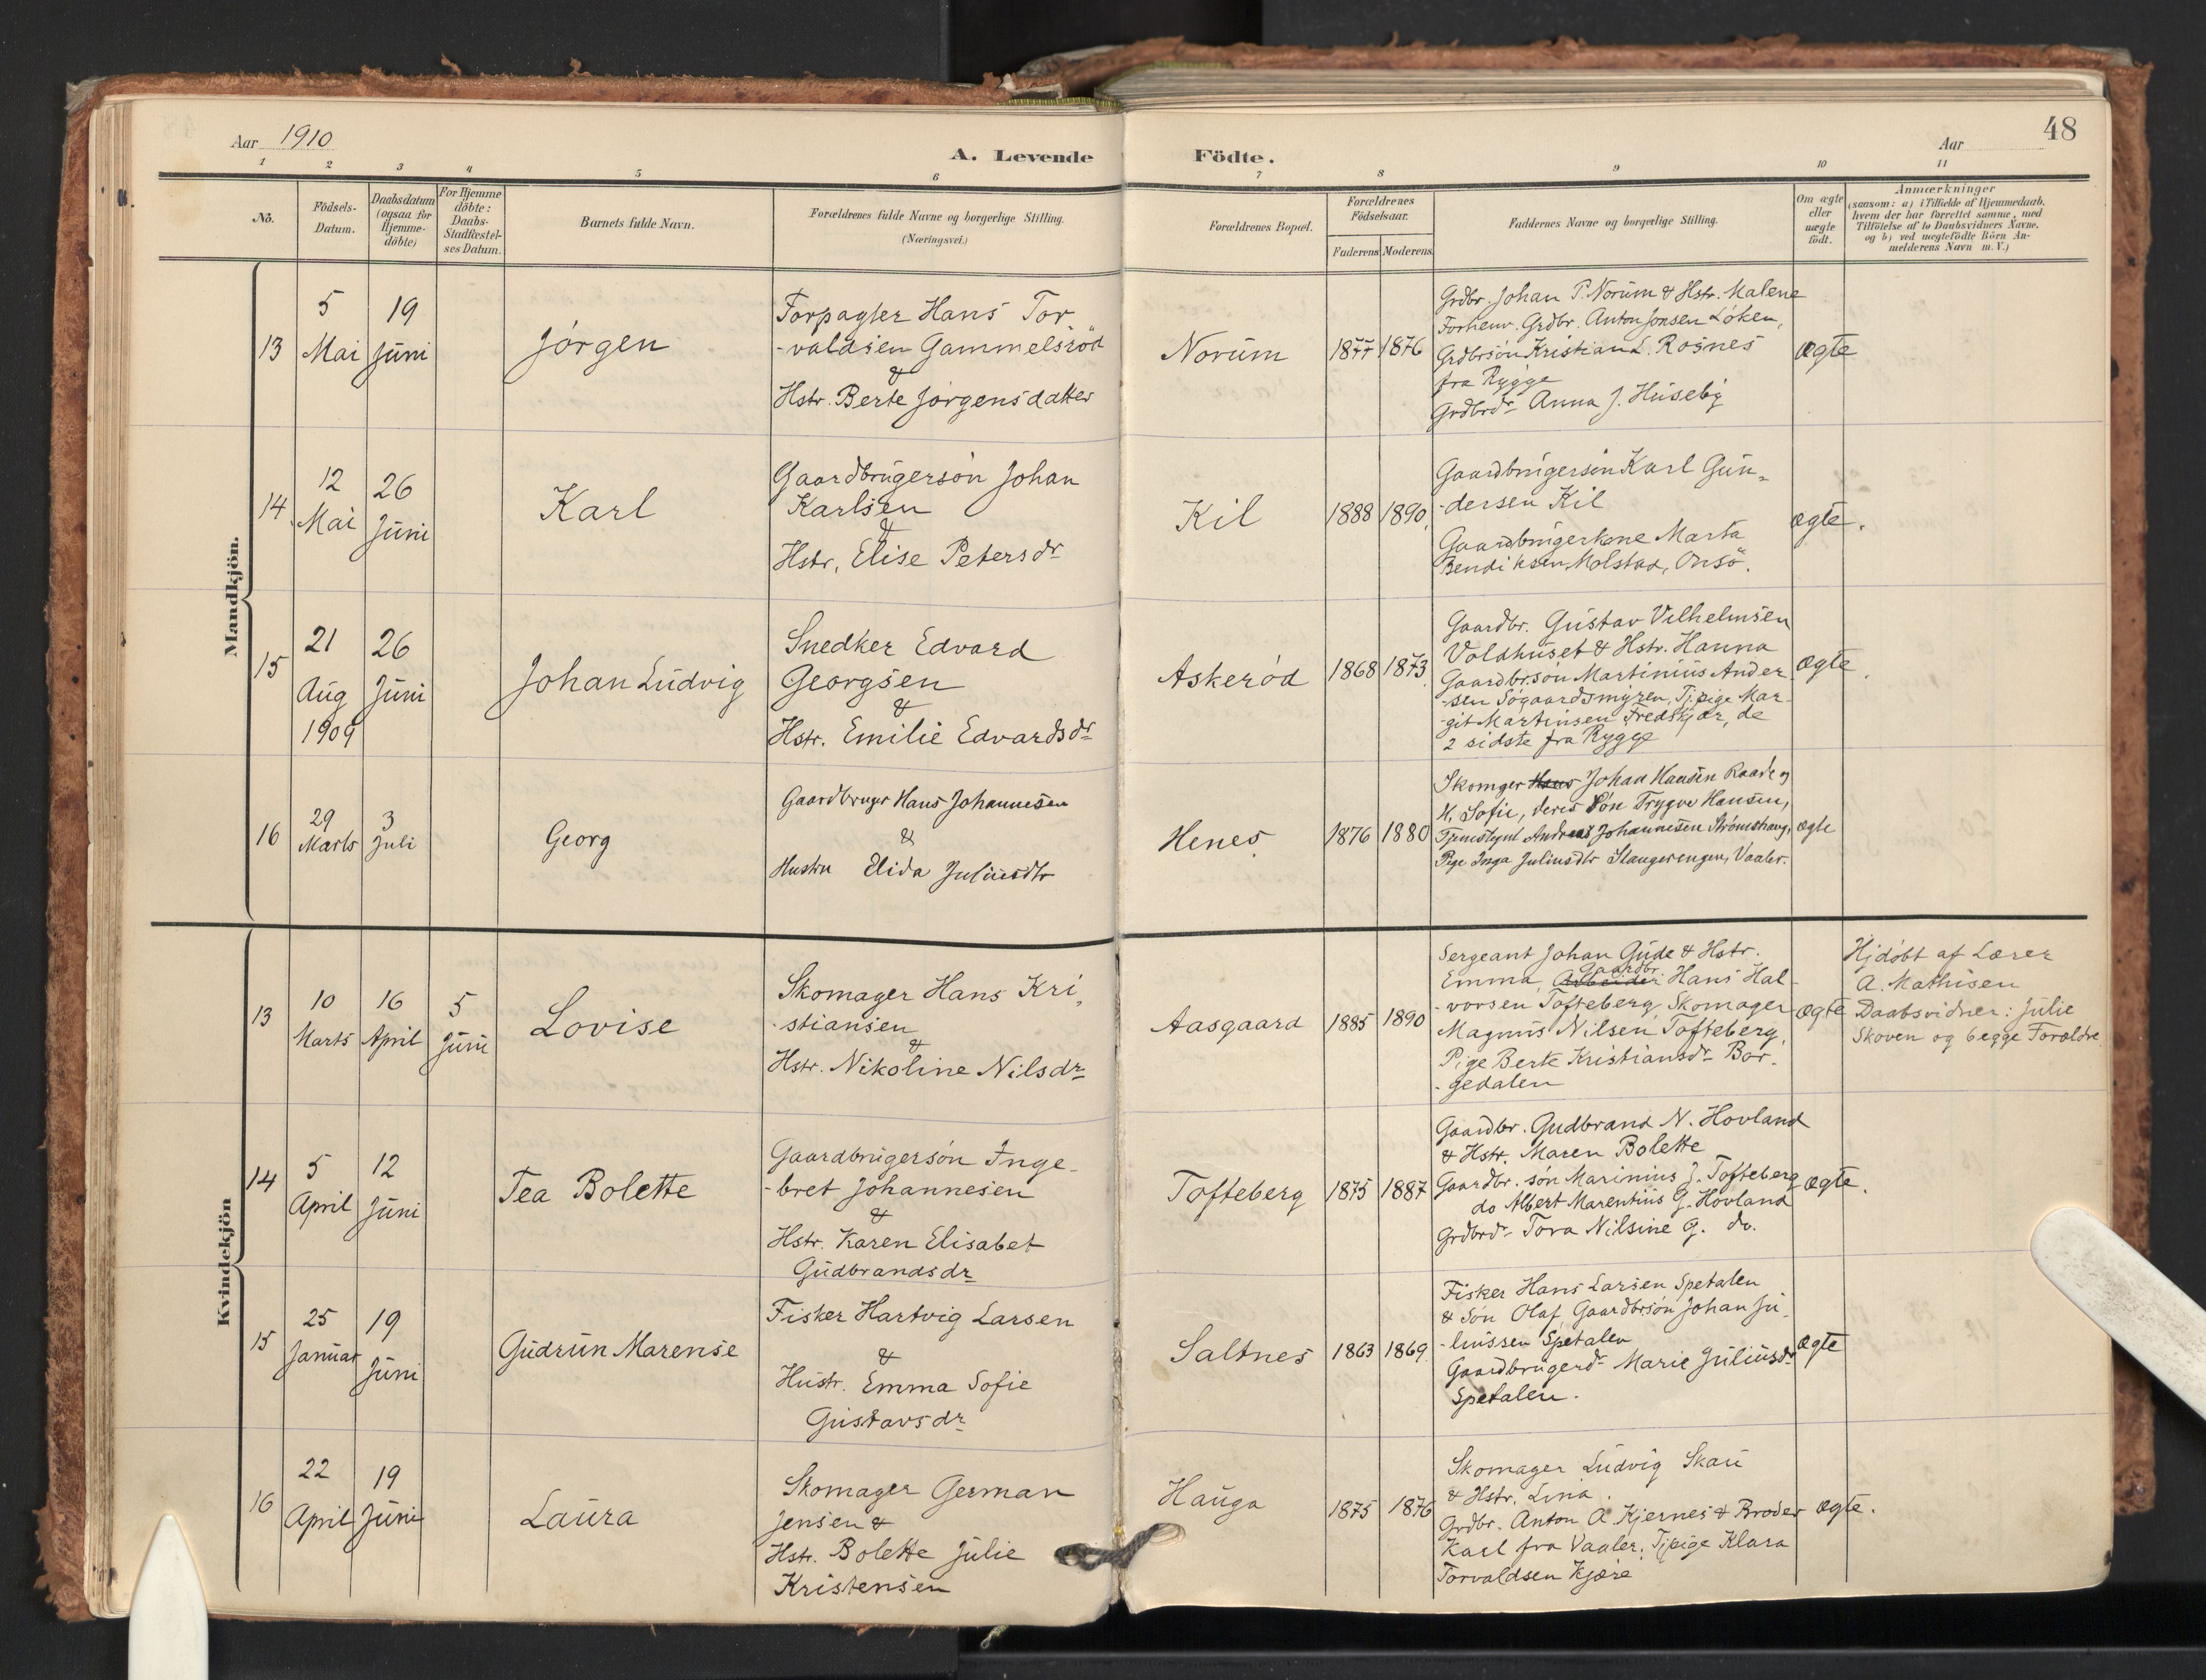 Aar 1910
A. Levende Födte.
Aar
48
1 2 3 4 5 6 7 8 9 10 11
No.
Födsels-Datum.
Daabsdatum (ogsaa for Hjemme-döbte)
For Hjemme döbte: Daabs-Stadfæstel-ses Datum.
Barnets fulde Navn.
Forældrenes fulde Navne og borgerlige Stilling.
(Næringsvei.)
Forældrenes Bopæl.
Forældrenes Födselsaar.
Faderens Moderens
Faddernes Navne og borgerlige Stilling.
Om ægte eller uægte födt.
Anmærkninger
(saasom: a) i Tilfælde af Hjemmedaab,
hvem der har forrettet samme, med
Tilföielse af to Daabsvidners Navne.
og b) ved uægtefödte Börn An-
melderens Navn m. V.)
Mandkjön.
13
5 Mai
19 Juni
Jörgen
Forpagter Hans Tor-
-valdsen Gammelsröd
&
Hstr. Berte Jörgensdatter
Norum
1877 1876
Grdbr. Johan P. Norum & Hstr. Malene
Forhenv. Grdbr. Anton Jonsen Löken,
Grdbrsön Kristian L. Rosnes
fra Rygge
Grdbrdr Anna J. Huseby
ægte
14
12 Mai
26 Juni
Karl
Gaardbrugersön Johan
Karlsen
&
Hstr. Elise Petersdr
Kil
1888 1890
Gaardbrugersön Karl Gun-
-dersen Kil
Gaardbrugerkone Marta
Bendiksen, Molstad, Onsö.
ægte.
15
21 Aug 1909
26 Juni
Johan Ludvig
Snedker Edvard
Georgsen
&
Hstr. Emilie Edvardsdr
Askeröd
1868 1873
Gaardbr. Gustav Vilhelmsen
Voldhuset & Hstr. Hanna
Gaardbrsön Martinius Ander
-sen Sögaardsmyren, Tjpige Mar-
-git Martinsen Fredskjær, de
2 sidste fra Rygge
ægte.
16
29 Marts
3 Juli
Georg
Gaardbruger Hans Johannesen
&
Hustru Elida Juliusdtr
Henes
1876 1880
Skomger Hans Johan Hansen Raade og
H. Sofie, deres Sön Trygve Hansen,
Andreas Johannesen Strömshaug,
Pige Inga Juliusdtr Slangerengen, Vaaler.
ægte
Kvindekjön
13
10 Marts
16 April
5 Juni
Lovise
Skomager Hans Kri-
-stiansen
&
Hstr. Nikoline Nilsdr
Aasgaard
1885 1890
Sergeant Johan Gude & Hstr.
Emma, Arbeider Gaardbr. Hans Hal-
-vorsen Tofteberg, Skomager
Magnus Nilsen Tofteberg,
Pige Berte Kristiansdr Bor-
-gedalen
ægte
Hjdöbt af Lærer
A. Mathisen
Daabsvidner: Julie
Skoven og begge Forældre.
14
5 April
12 Juni
Tea Bolette
Gaardbrugersön Inge-
-bret Johannesen
&
Hstr. Karen Elisabet
Gudbrandsdr
Tofteberg
1875 1887
Gaardbr. Gudbrand N. Hovland
& Hstr. Maren Bolette
Gaardbr. sön Marinius J. Tofteberg
do Albert Marentius G. Hovland
Grdbrdr Tora Nilsine G. do.
ægte.
15
25 Januar
19 Juni
Gudrun Marense
Fisker Hartvig Larsen
&
Hustr. Emma Sofie
Gustavsdr
Saltnes
1863 1869
Fisker Hans Larsen Spetalen
& Sön Olaf, Gaardbrsön Johan Ju-
-liussen Spetalen
Gaardbrugerdr Marie Juliusdr
Spetalen.
ægte
16
22 April
19 Juni
Laura
Skomager German
Jensen &
Hstr. Bolette Julie
Kristensen
Hauga
1875 1876
Skomager Ludvig Skau
& Hstr. Lina.
Grdbr. Anton A. Kjernes & Broder
Karl fra Vaaler. Tjpige Klara
Torvaldsen Kjære
ægte.